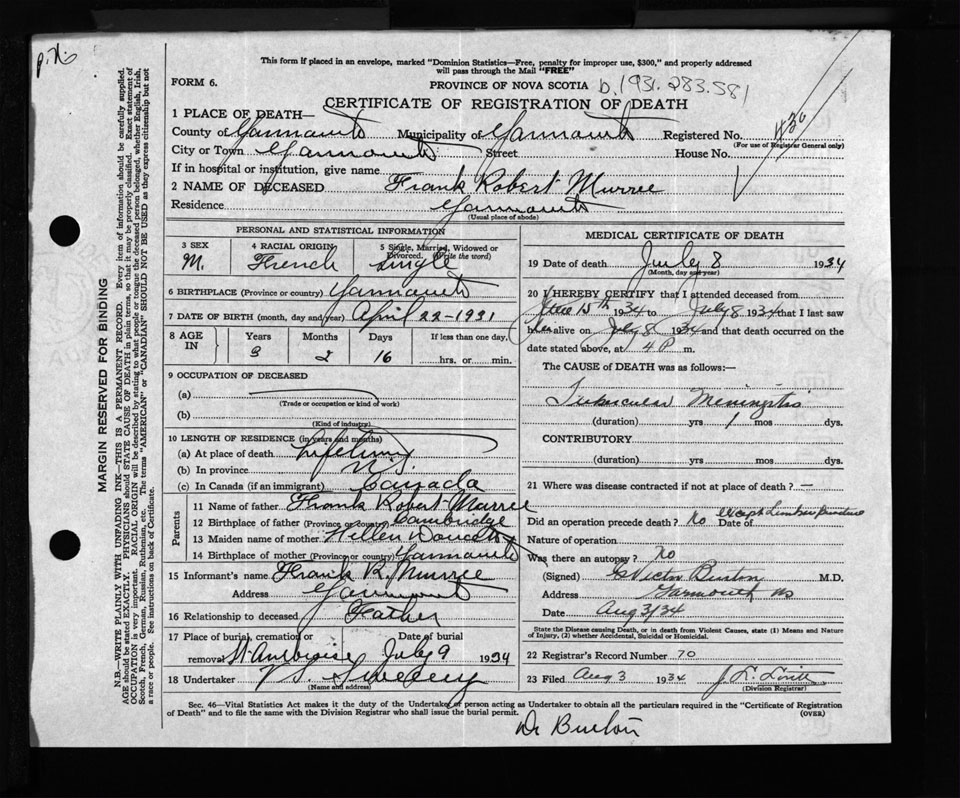 p.N.
This form if placed in an envelope, marked "Dominion Statistics—Free, penalty for improper use, $300," and properly addressed
will pass through the Mail "FREE"
FORM 6.
PROVINCE OF NOVA SCOTIA b.1931.283.581
CERTIFICATE OF REGISTRATION OF DEATH
1 PLACE OF DEATH—
County of Yarmouth Municipality of Yarmouth Registered No.
(For use of Registrar General only)
City or Town Yarmouth Street House No.
If in hospital or institution, give name
2 NAME OF DECEASED Frank Robert Murree
Residence Yarmouth
(Usual place of abode)
PERSONAL AND STATISTICAL INFORMATION
3 SEX 4 RACIAL ORIGIN 5 Single, Married, Widowed or
Divorced. (Write the word)
M. French Single
6 BIRTHPLACE (Province or country) Yarmouth
7 DATE OF BIRTH (month, day and year) April 22-1931
8 AGE IN Years Months Days If less than one day,
3 2 16 hrs. or min.
9 OCCUPATION OF DECEASED
(a)
(Trade or occupation or kind of work)
(b)
(Kind of industry)
10 LENGTH OF RESIDENCE (in years and months)
(a) At place of death Lifetime
(b) In province N.S.
(c) In Canada (if an immigrant) Canada
Parents
11 Name of father Frank Robert Murree
12 Birthplace of father (Province or country) Cambridge
13 Maiden name of mother Hellen
14 Birthplace of mother (Province or country) Yarmouth
15 Informant's name Frank R. Murree
Address Yarmouth
16 Relationship to deceased Father
17 Place of burial, cremation or Date of burial
removal St Ambroise July 9 1934
18 Undertaker V S. Sweeny
(Name and address)
MEDICAL CERTIFICATE OF DEATH
19 Date of death July 8 1934
(Month, day and year)
20 I HEREBY CERTIFY that I attended deceased from
June 15th 1934 to July 8 1934 that I last saw
him alive on July 8 1934 and that death occurred on
date stated above, at 4 P m.
The CAUSE of DEATH was as follows:—
Tubercular Meningitis
(duration) yrs 1 mos dys.
CONTRIBUTORY
(duration) yrs mos dys.
21 Where was disease contracted if not at place of death? —
except Lumbar Puncture
Did an operation precede death? No Date of
Nature of operation
Was there an autopsy? No
(Signed) G Victor Burton M.D.
Address Yarmouth NS
Date Aug 3/34
State the Disease causing Death, or in death from Violent Causes, state (1) Means and Nature
of Injury, (2) whether Accidental, Suicidal or Homicidal.
22 Registrar's Record Number 70
23 Filed Aug 3 1934
(Division Registrar)
Sec. 46—Vital Statistics Act makes it duty of the Undertaker or person acting as Undertaker to obtain all the particulars required in the "Certificate of Registration
of Death" and to file the same with the Division Registrar who shall issue the burial permit. (OVER)
Dr Burton
MARGIN RESERVED FOR BINDING
N.B.—WRITE PLAINLY WITH UNFADING INK—THIS IS A PERMANENT RECORD. Every item of information should be carefully supplied.
AGE should be stated EXACTLY. PHYSICIANS should state CAUSE OF DEATH in plain terms, so that it may be properly classified. Exact statement of
OCCUPATION is very important. RACIAL ORIGIN will be described by stating to what people or tongue the deceased person belonged, whether English, Irish,
Scotch, French, German, Russian, Ruthenian, etc. The terms "AMERICAN" or "CANADIAN" SHOULD NOT BE USED as they express citizenship but not
a race or people. See instructions on back of Certificate.